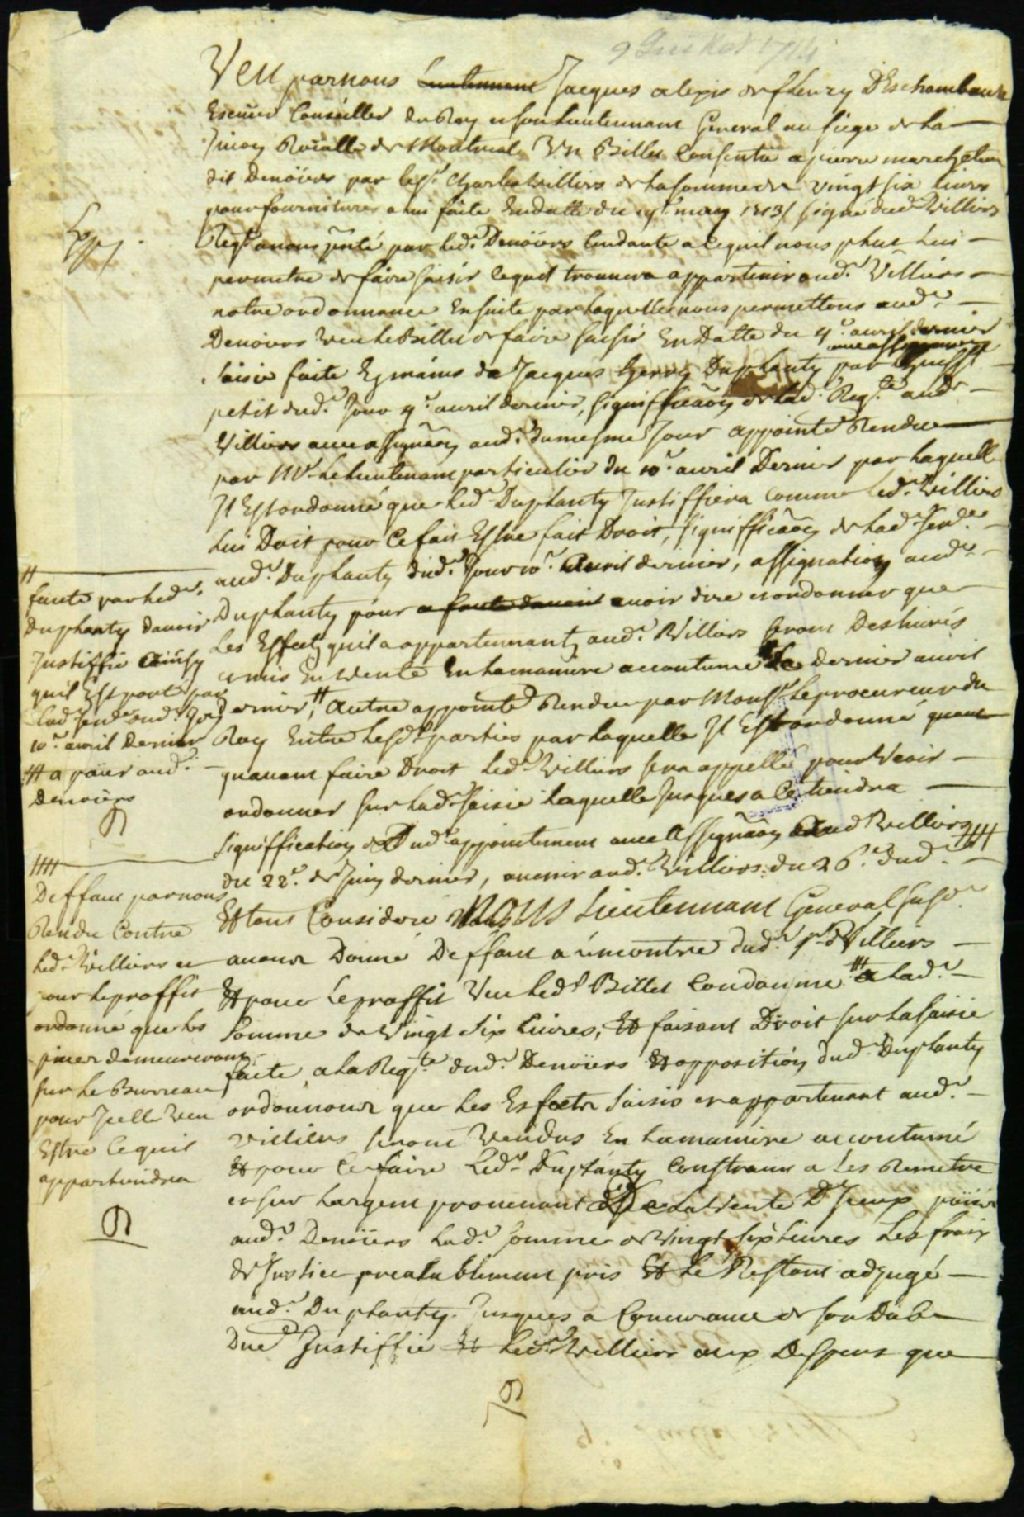 9 Juillet 1714
Veu par nous Lieutennant Jacques alexis de fleury DEschambault
Escuier Conseiller du Roy et son lieutennant General au siege de la
Juron Roialle de Montreal Un Billet Consentie a pierre marchetau
dit Denoiers par le Sr. Charles Villiers de la somme de vingt six livres
pour fournitures a lui faite En datte du may 1713 signé dud Villiers
Reqte a nous pnté par led. Denoiers tendante a ce quil nous plust lui
permettre de faire saisir ce quil trouvera appartenir aud. Villiers
notre ordonnance Ensuite par laquelle nous permettons aud.
Denoiers veu le Billet de faire saisir En Datte du 9e. avril dernier
saisie faite Es mains de Jacques Hervy Duplanty par
petit dud. Jour 9e. avril dernier, signiffication de lad. Reqte. aud.
Villiers avec assignaon aud. du mesme Jour appointé Rendue
par Mr. le lieutenant particulier du 10e. avril Dernier par laquelle
Il Est ordonné que led. Duplanty Justiffiera comme led. Villiers
lui Doit pour Ce fait Estre fait Droit, signifficaon de lad. Sence.
aud. Duplanty dud. Jour 10e. avril dernier, assignation aud.
Duplanty pour a faute davoir avoir dire et ordonner que
Les Effects quil a appartennant aud. Villiers seront Deslivrés
et mis En vente En la maniere accoutumé Le dernier avril
dernier, # autre appointé Rendue par Monsr. le procureur du
Roy Entre lesd. parties par laquelle Il Est ordonné quau
quavant faire Droit led. Villiers sera appellé pour Veoir
ordonner sur lad. saisie laquelle Jusques a Ce tiendra
signiffication dud. appointement avec assignaon aud. Villiers ####
du 22e. de Juin dernier, avenir aud. Villiers du 26e. dud.
Et tout Consideré NOUS Lieutennant General susd.
avons Donné Deffaut a lencontre dud. Villiers
Et pour le proffit Veu led. Billet Condamné ### a lad.
somme de Vingt six livres, Et faisant Droit sur la saisie
faite a la Reqte. dud. Denoiers Et opposition dud. Duplanty
ordonnons que les Effects saisis et appartenant aud.
Villiers seront Vendus En la maniere accoutumé
Et pour ce faire led. Duplanty Constraint a les Remettre
et sur largent provenant de la Vente Diceux paier
aud. Denoiers lad. somme de Vingt six livres Les frais
de Justice prealablement pris Et le Restant adjugé
aud. Duplanty Jusques a Concurance de son Dub
Duement Justiffié Et led. Villiers aux Despens que
#
faute par led.
duplanty davoir
Justiffié ainsy
quil Est porté par
lad. sence. dud. Jour
10e. avril dernier
### a paier aud.
denoiers
####
Deffaut par nous
Rendu Contre
led. Villiers et
pour le proffit
ordonné que les
pieces demeureront
sur le Bureau
pour Icelle Veu
Estre Ce quil
appartiendra